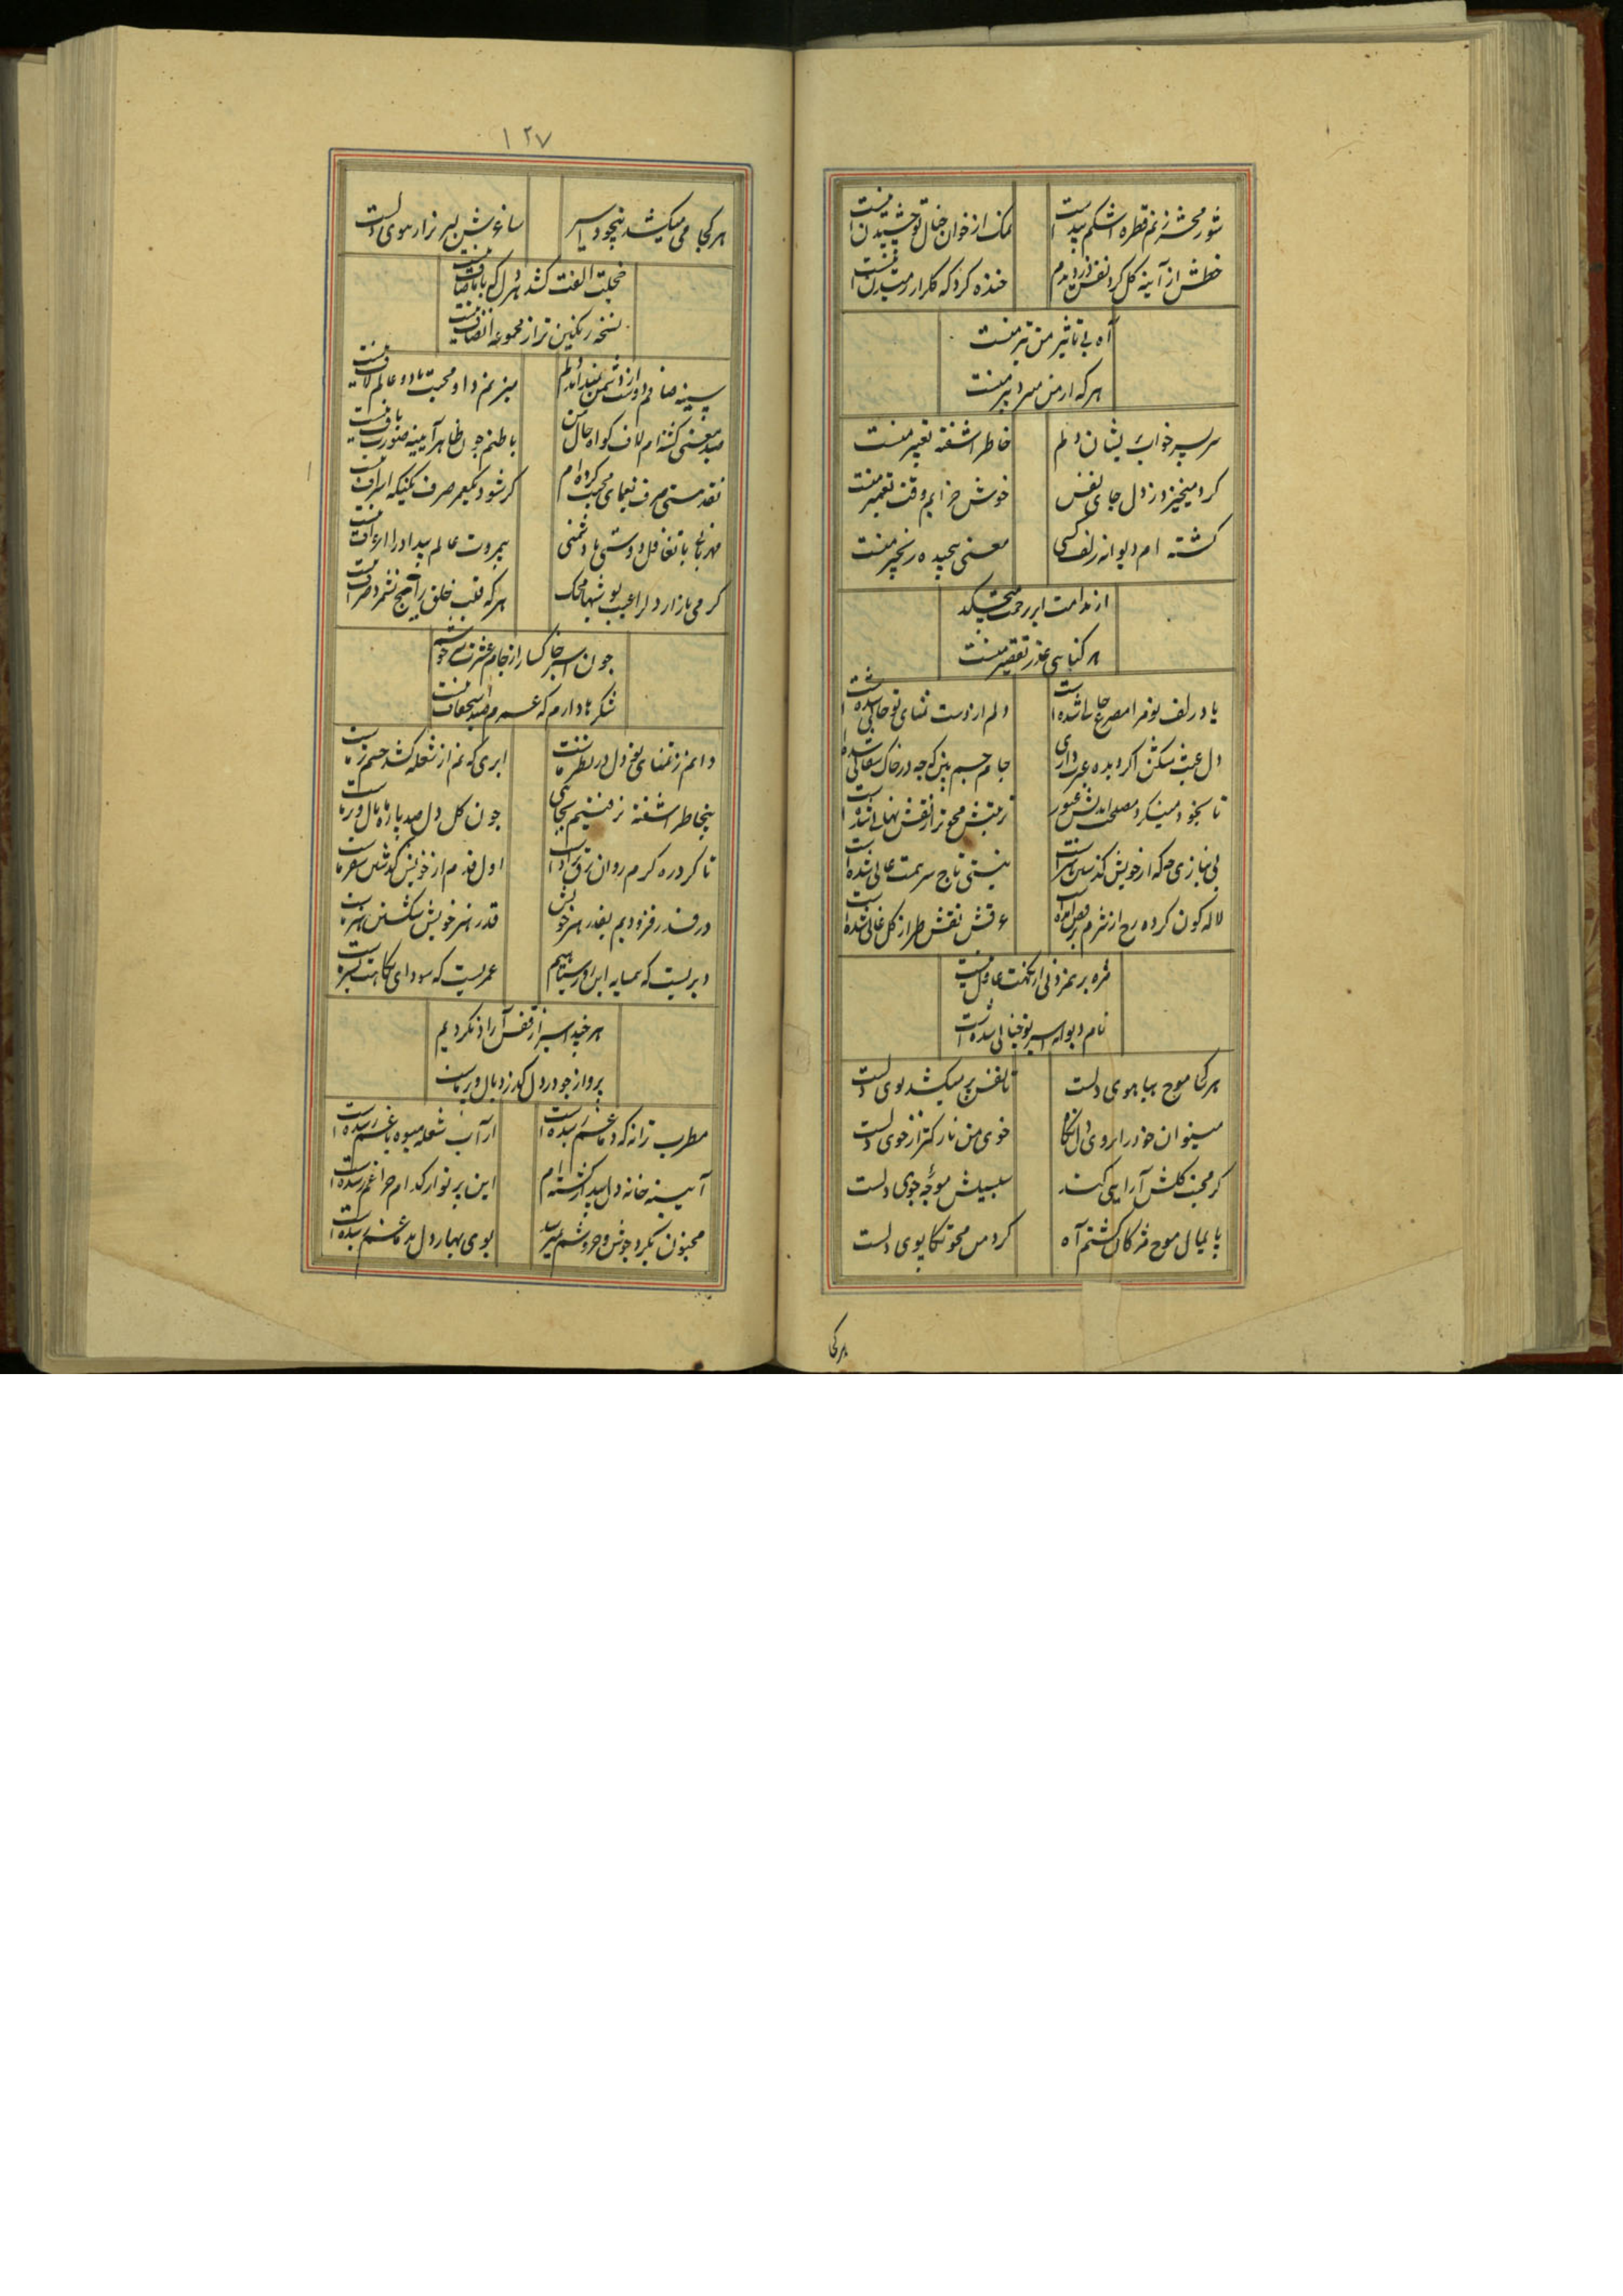 شور محشر ز نم قطره اشکم پیداست
نمک از خوان خیال تو چشیدن
خطش از آینه گل کرد نفس
خنده کرد که گلزار
آه بی تاثیر من تیر منست
هر که از من میرد تیر منست
سر بسر خواب پریشان دلم
خاطر آشفته تعبیر منست
گرد میخیزد ز دل جای نفس
خوش خرابم وقت تعمیر منست
گشته ام دیوانه زلف کسی
معنی پیچیده زنجیر منست
از ندامت ابر رحمت میچکد
هر گناهی عذر تقصیر منست
یاد زلف تو مرا مصرع شده است
دلم از دست تمنای تو خالی شده است
دل عبث مشکن اگر دیده عبرت داری
جام جم بین که چه در خاک سفالی شده است
تا بخود میکرد عبور
نقش نهالی شده است
بی نیازی که از خویش گذشتن
نیستی تاج سر همت عالی شده است
لاله گون کرده رخ از شرم
عرقش نقش طراز گل شده است
مژه بر هم زدنی از نگهت غافل نیست
نام دیوانه اسیر تو خیالی شده است
هر کجا موج هیاهوی دلست
نفس پر میکشد بوی دلست
میتوان خوردن ابروی دل
خوی من نازکتر از خوی دلست
گر محبت گلشن آرایی کند
سلسبیلش موجه جوی دلست
پایمال موج مژگان گشتم آه
گرد من محو تکاپوی دلست
هر کجا
۱۲۷
هر کجا می میکشد بیخود اسیر
ساغرش لبریز از هوی دلست
خجلت الفت کشد هر دل که با ما صاف نیست
نسخه رنگین تر از مجموعه انصاف نیست
سینه صافم دوست از دشمن نمیداند دلم
میزنم داد محبت با دو عالم لاف نیست
معنی گشته ام لاف گواه حال من
باطنم چون ظاهر آیینه صورت باف نیست
نقد هستی صرف یغمای محبت کرده ام
گر شود کم عمر صرف نیکی اسراف نیست
مهربانی با تغافل دوستی با دشمنی
بیمروت عالم بیداد را اعراف نیست
گرمی بازار دلها محک
هر که قلب خلق را هیچ نشمرد صراف نیست
چون اسیر خاکسار از جام عشرت سرخوشیم
شکرها دارم که عمرم صید نیست
دایم ز تمنای تو خون دل در نظر ماست
ابری که نم از شعله کشد چشم تر ماست
بیخاطر آشفته نرفتیم بجایی
چون گل دل صد پاره ما بال و پر ماست
تا گرد ره گرم روان
اول قدم از خویش گذشتن سفر ماست
در قدر فزودیم بقدر هنر خویش
قدر هنر خویش شکستن هنر ماست
دیریست که همسایه این
عمریست که سودای نکاهت بسر ماست
هر چند اسیر از قفس آزاد نگردیم
پرواز چو در دل گذرد بال و پر ماست
مطرب ترانه که دماغم رسیده است
از آب شعله میوه باغم رسیده است
آیینه خانه دل بیدار گشته ام
این پرتو از کدام چراغم رسیده است
مجنون بگرد جوش و خروشم نمیرسد
بوی بهار دل بدماغم رسیده است